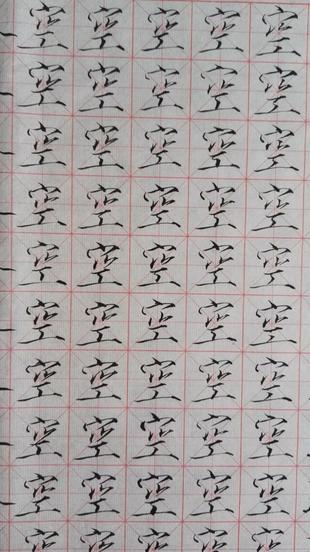 空空空空空
空空空空空
空空空空空
空空空空空
空空空空空
空空空空空
空空空空空
空空空空空
空空空空空
空空空空空